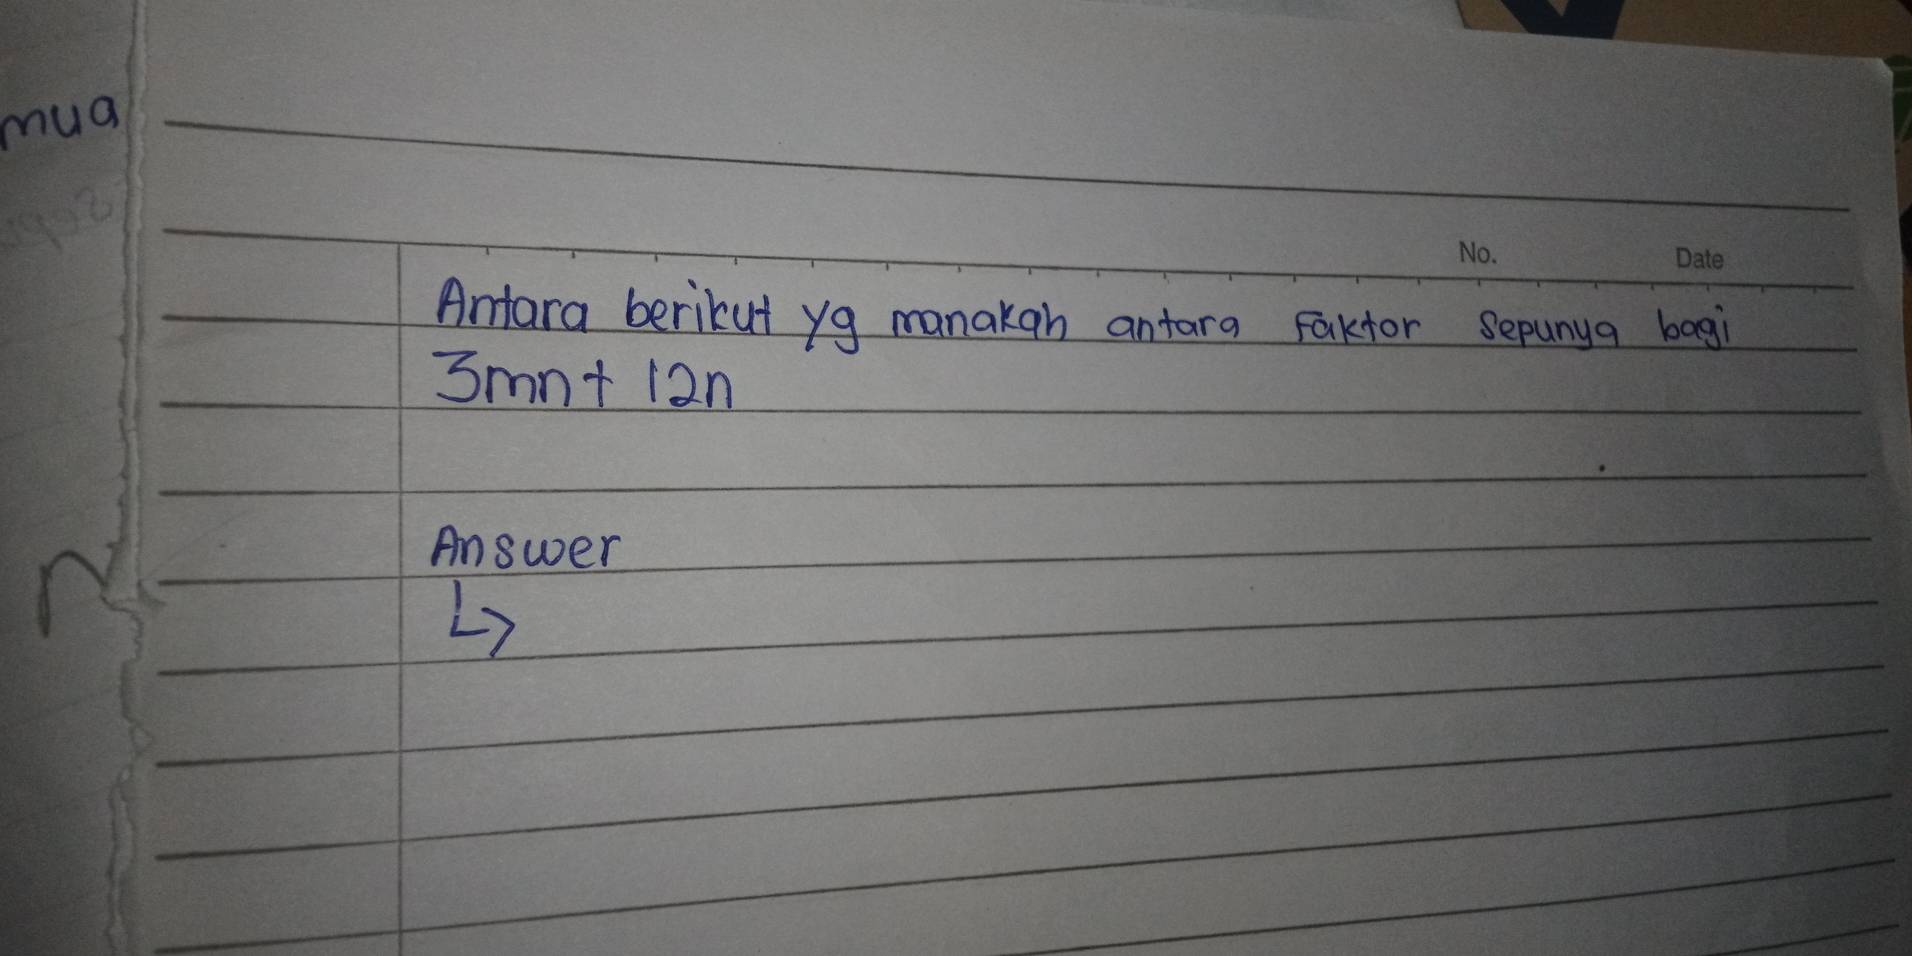 mua
No. Date
Antara berikut yg manakah antara Faktor Sepunya bagi
3mn + 12n
Answer